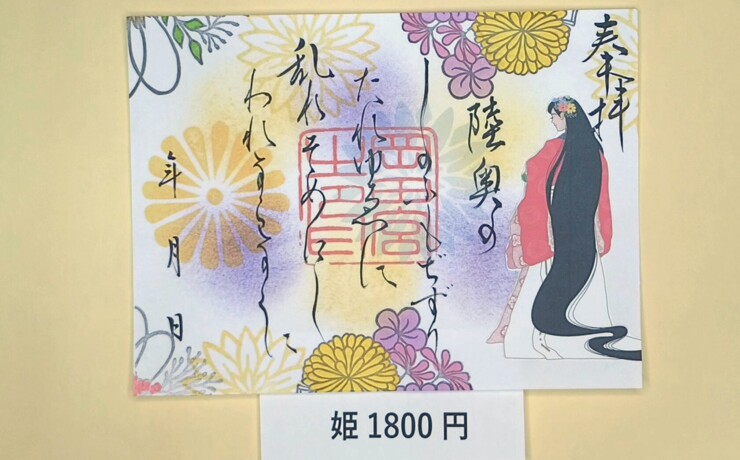 奉拝
陸奥の
しのぶもぢずり
たれゆゑに
乱れそめにし
われならなくに
年 月 日
姫1800円